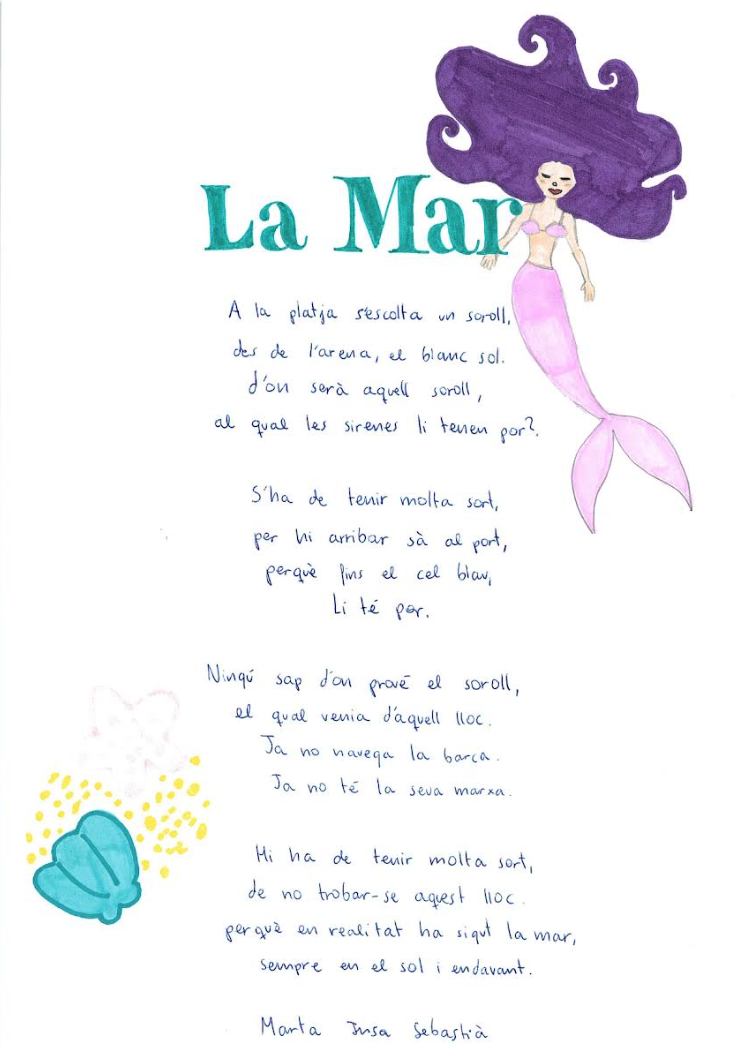 La Mar
A la platja s'escolta un soroll,
des de l'arena, el blanc sol.
d'on serà aquell soroll,
al qual les sirenes li tenen por?.
S'ha de tenir molta sort,
per hi arribar sà al port,
perquè fins el cel blau,
Li té por.
Ningú sap d'on prové el soroll,
el qual venia d'aquell lloc.
Ja no navega la barca.
Ja no té la seva marxa.
Hi ha de tenir molta sort,
de no trobar-se aquest lloc.
perquè en realitat ha sigut la mar,
sempre en el sol i endavant.
Marta Insa Sebastià